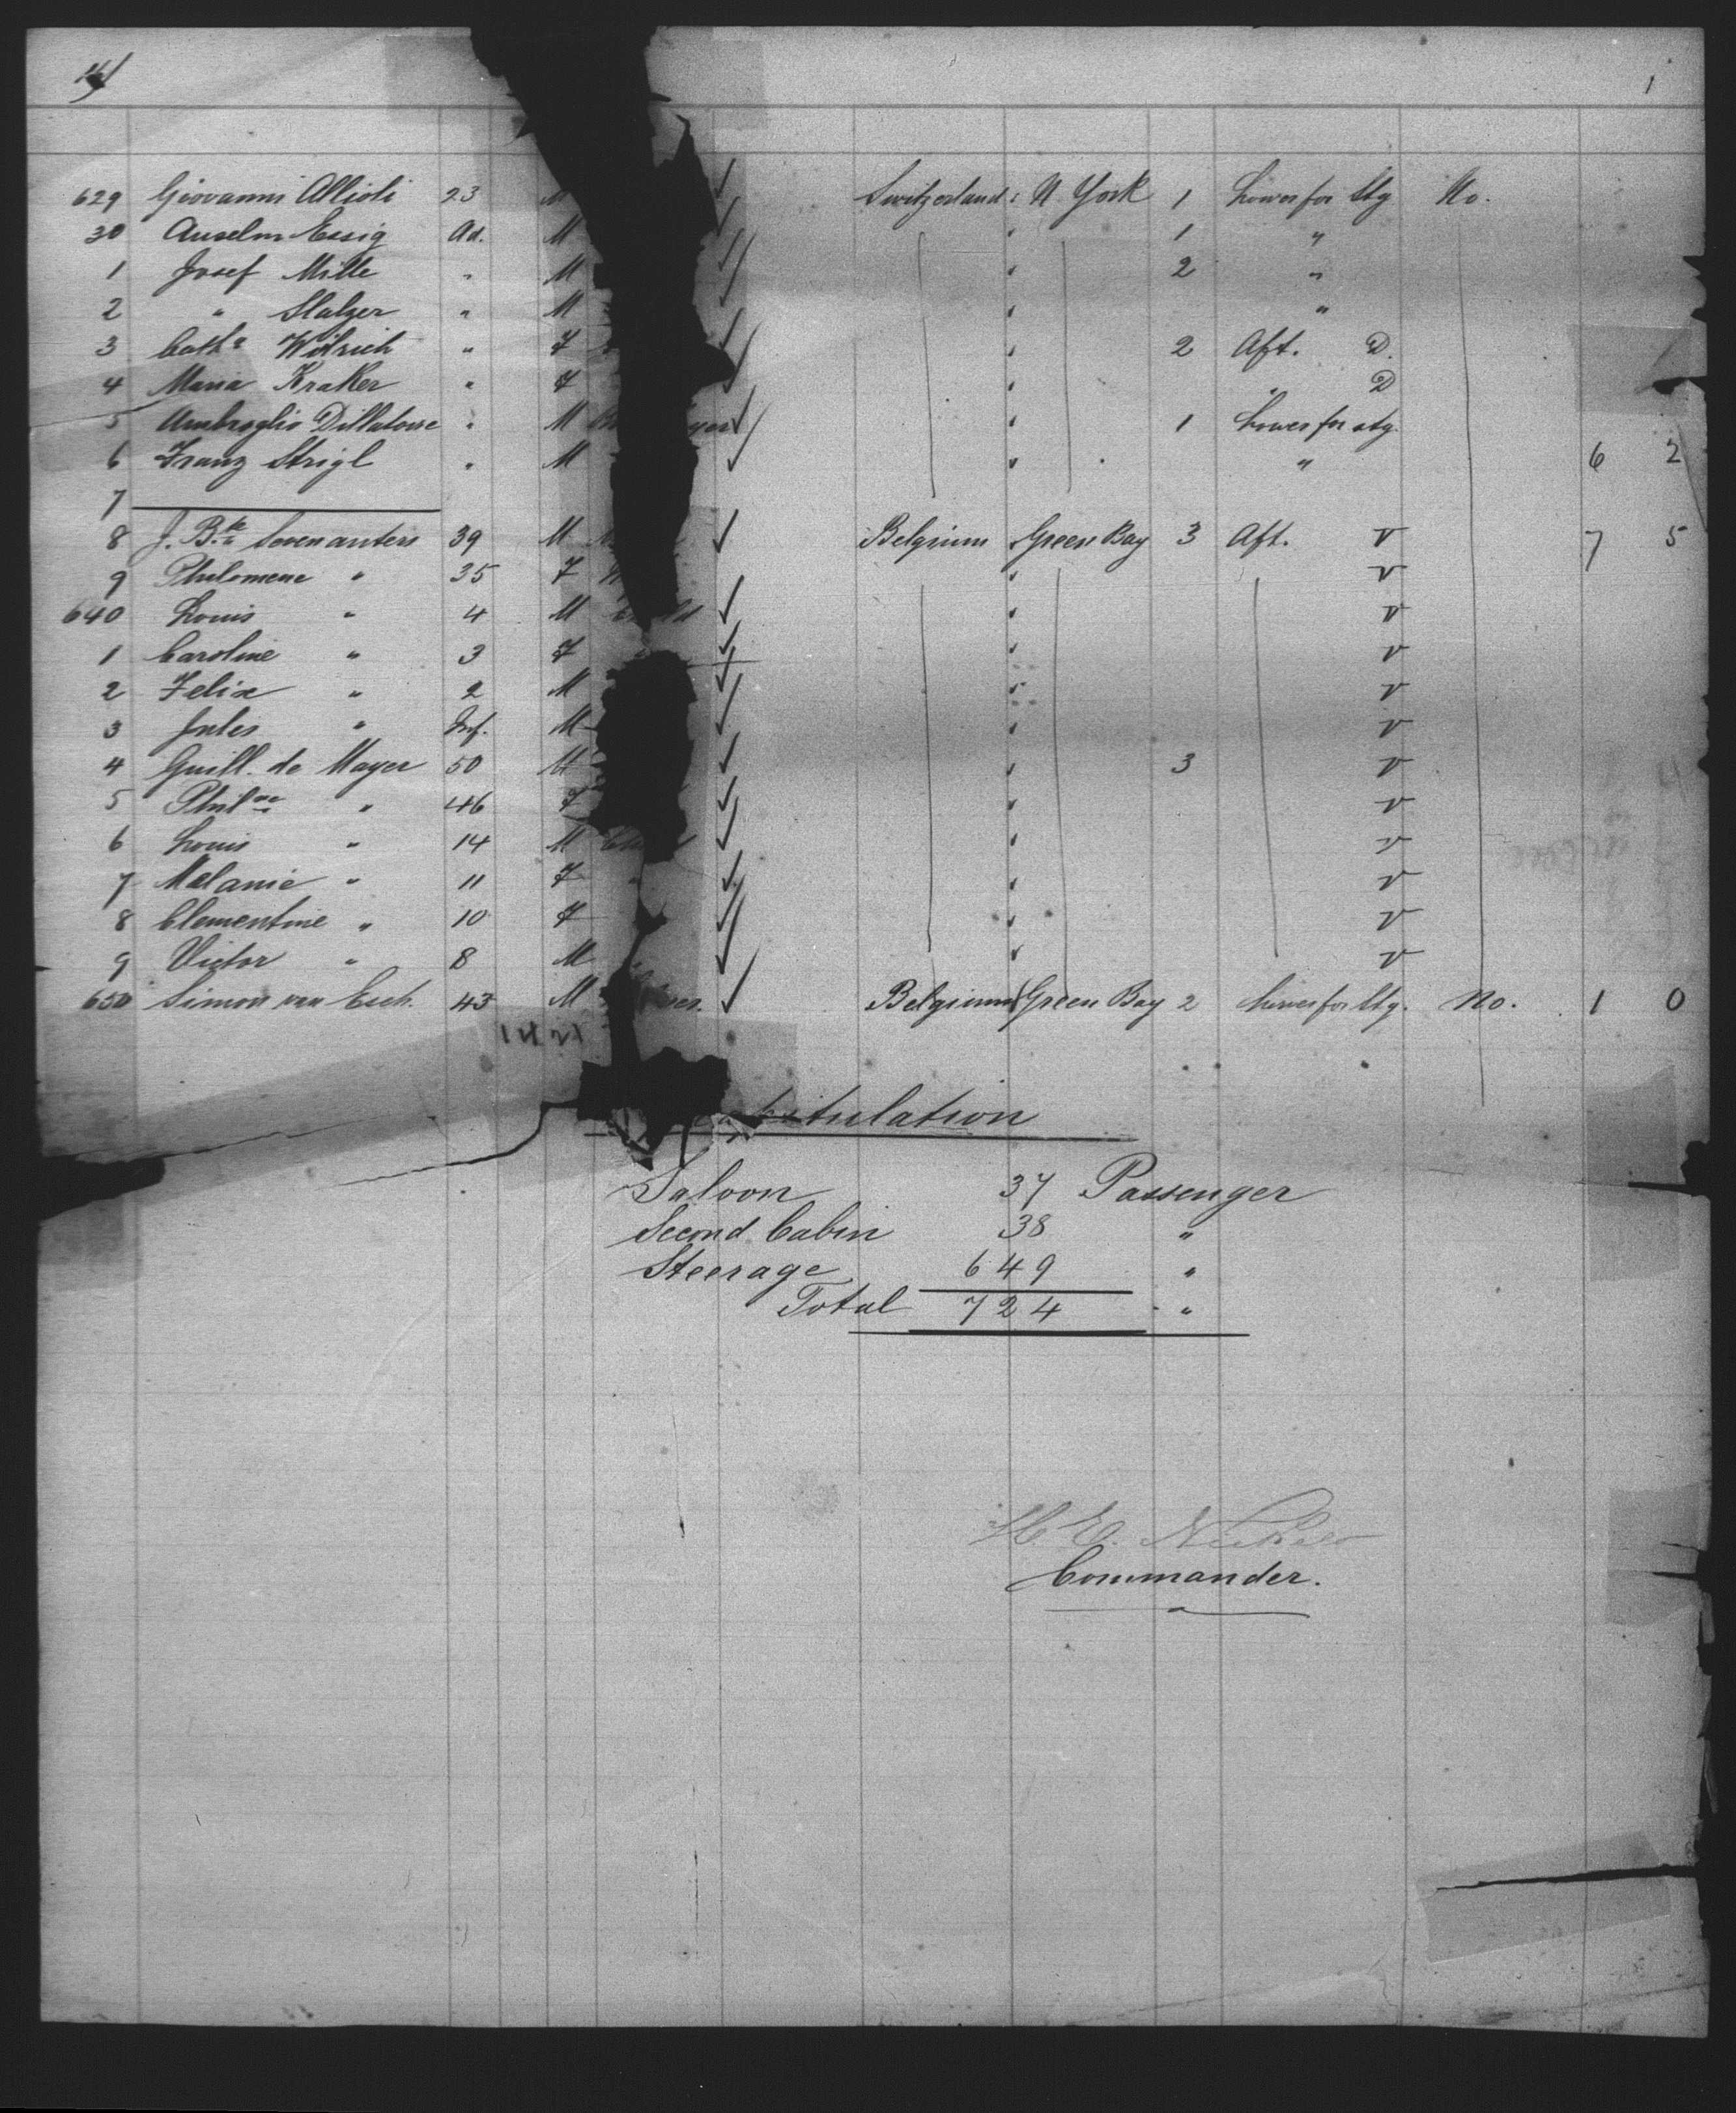 1
629 Giovanni Allioli 23 M Switzerland N York 1 Lower for Stg No.
30 Anselm Essig Ad. M " 1 "
1 Josef Mille " M " 2 "
2 " Slalzer " M " "
3 Cath.a Witrich " F " 2 Aft. D.
4 Maria Kraker " F " " D
5 Ambroglio Dillatorre " M " 1 Lower for stg.
6 Franz Strigl " M " " 6 2
7
8 J. B.te Sovenanters 39 M Belgium Green Bay 3 Aft. V 7 5
9 Philomene " 35 F " V
640 Louis " 4 M Child " V
1 Caroline " 3 F " " V
2 Felix " 2 M " V
3 Jules " Inf. M " V
4 Guill. de Mayer 50 M " 3 V
5 Phil.ne " 46 F " V
6 Louis " 14 M Child " V
7 Melanie " 11 F " " V
8 Clementine " 10 F " V
9 Victor " 8 M " " V
650 Simon van Esch. 43 M Belgium Green Bay 2 Lower for Stg. No. 1 0
1421
itulation
Saloon 37 Passenger
Second Cabin 38 "
Steerage 649 "
Total 724 "
H. E. Nickels
Commander.